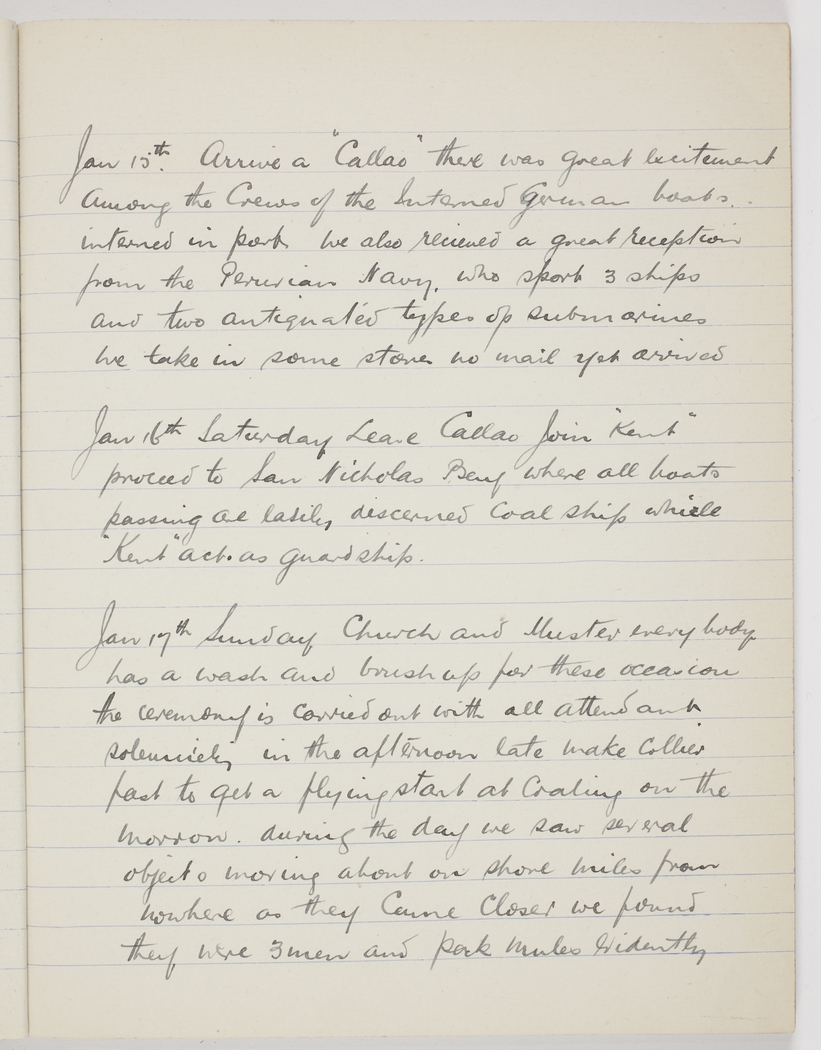 Jan 15th. Arrive a "Callao" there was great excitement
among the Crews of the Interned German boats.
interned in port. We also recieved a great reception
from the Peruvian Navy, who sport 3 ships
and two antiquated types of submarines
We take in some stores no mail yet arrived
Jan 16th Saturday Leave Callao Join "Kent"
proceed to San Nicholas Bay where all boats
passing are easily discerned Coal ship while
"Kent" act. as guardship.
Jan 17th Sunday Church and Muster every body
has a wash and brush up for these occasion
the ceremony is carried out with all attendant
solemnity in the afternoon late make Collier
fast to get a flying start at Coaling on the
morrow. during the day we saw several
objects moving about on shore miles from
nowhere as they Came Closer we found
they were 3 men and pack mules Evidently